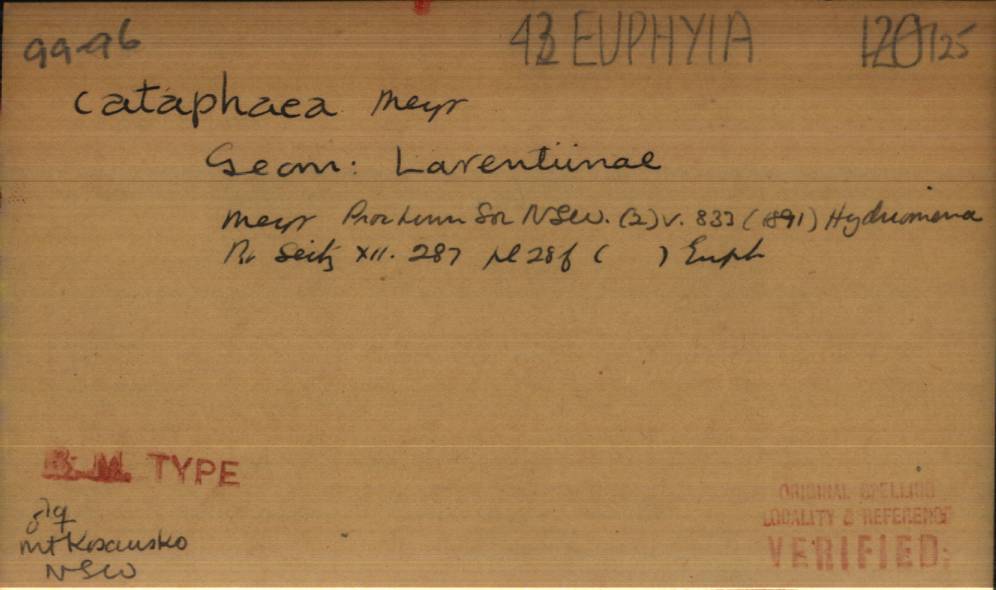 99-96 43 EUPHYIA 120/125
cataphaea Meyr
Geom: Larentiinae
Meyr Proc Linn Soc NSW. (2) v. 833 (1891) Hydriomena
Pr. Seitz XII. 287 pl 28f ( ) Euph
B. M. TYPE
ORIGINAL SPELLING
LOCALITY & REFERENCE
VERIFIED:
Mt Kosciusko
NSW